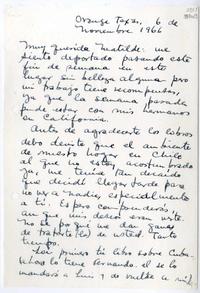 Orange Texas, 6 de
Noviembre 1966
Muy querida Matilde: me
siento deportado pasando este
fin de semana en este
lugar sin belleza alguna pero
mi trabajo tiene recompensas,
ya que la semana pasada
pude estar con mis hermanos
en California.
Antes de agradecerte los libros
debo decirte que el ambiente
de nuestro hogar en Chile
al que me estoy acostumbrado
ya, me tenía tan decaido
que decidí llegar tarde para
no ver a nadie, especialmente
a tí. Es para comprenderás
aun que mis deseos eran verte.
No sé por qué me dan ganas
de tratarte de usted. Tanto
tiempo.
Leí primero tu libro sobre Cuba.
Ahora lo tiene Fernando, él se lo
mandará a Luis y de vuelta a mí